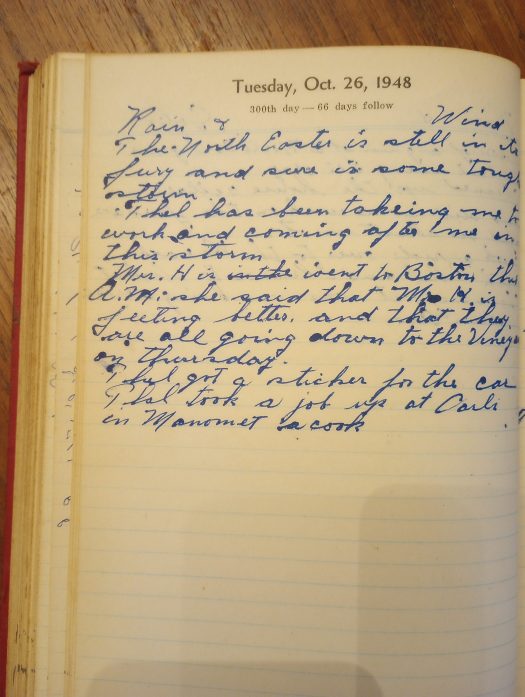 Tuesday, Oct. 26, 1948
300th day — 66 days follow
Rain & Wind
The North Easter is still in its
fury and sure is some tough
storm.
Thel has been takeing me to
work and coming after me in
this storm
Mrs. H is in the went to Boston this
A.M. she said that Mr H. is
feeling better. and that they
are all going down to the Vineya
on thursday.
Thel got a sticker for the car
Thel took a job up at Carls
in Manomet a cook